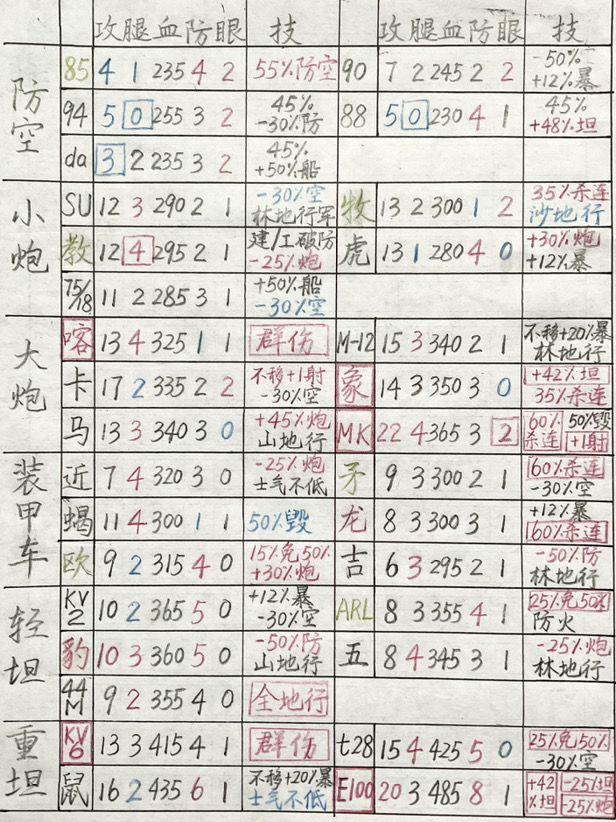 攻腿血防眼 技 攻腿血防眼 技
防空
85 4 1 235 4 2 55%防空 90 7 2 245 2 2 -50% +12%暴
94 5 0 255 3 2 45% -30%防 88 5 0 230 4 1 45% +48%坦
da 3 2 235 3 2 45% +50%船
小炮
SU 12 3 290 2 1 -30%空 林地行军 牧 13 2 300 1 2 35%杀连 沙地行
教 12 4 295 2 1 建/工破防 -25%炮 虎 13 1 280 4 0 +30%炮 +12%暴
75/18 11 2 285 3 1 +50%船 -30%空
大炮
喀 13 4 325 1 1 群伤 M-12 15 3 340 2 1 不移+20%暴 林地行
卡 17 2 335 2 2 不移+1射 -30%空 象 14 3 350 3 0 +42%坦 35%杀连
马 13 3 340 3 0 +45%炮 山地行 MK 22 4 365 3 2 60%杀连 50%毁 +1射
装甲车
近 7 4 320 3 0 -25%炮 士气不低 矛 9 3 300 2 1 60%杀连 -30%空
蝎 11 4 300 1 1 50%毁 龙 8 3 300 3 1 +12%暴 60%杀连
欧 9 2 315 4 0 15%免50% +30%炮 吉 6 3 295 2 1 -50%防 林地行
轻坦
KV2 10 2 365 5 0 +12%暴 -30%空 ARL 8 3 355 4 1 25%免50% 防火
豹 10 3 360 5 0 -50%防 山地行 五 8 4 345 3 1 -25%炮 林地行
44M 9 2 355 4 0 全地行
重坦
KV6 13 3 415 4 1 群伤 t28 15 4 425 5 0 25%免50% -30%空
鼠 16 2 435 6 1 不移+20%暴 士气不低 E100 20 3 485 8 1 +42%坦 -25%坦 -25%炮